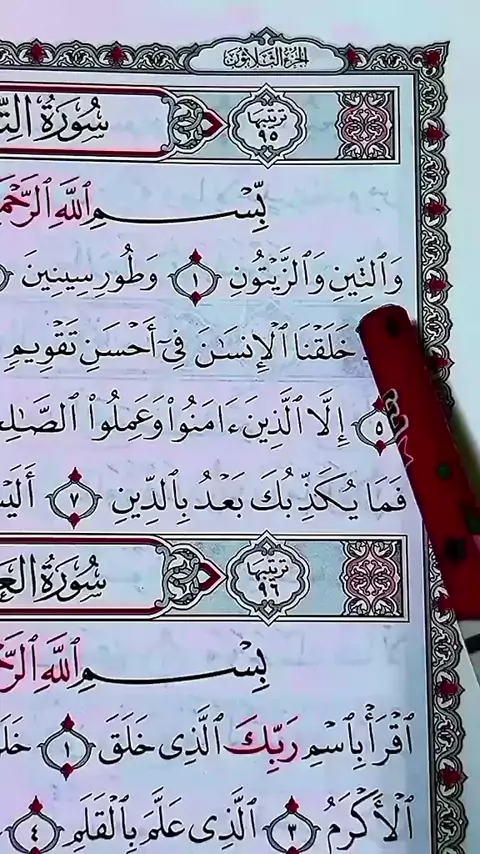 الجزء الثلاثون
سُورَةُ التِّ
ترتيبها ٩٥
بِّسْمِ ٱللَّهِ ٱلرَّحْمَ
وَٱلتِّينِ وَٱلزَّيْتُونِ ١ وَطُورِ سِينِينَ
خَلَقْنَا ٱلْإِنسَٰنَ فِىٓ أَحْسَنِ تَقْوِيمٍ
٥ إِلَّا ٱلَّذِينَ ءَامَنُوا۟ وَعَمِلُوا۟ ٱلصَّٰلِحَ
فَمَا يُكَذِّبُكَ بَعْدُ بِٱلدِّينِ ٧ أَلَيْسَ
سُورَةُ العَ
ترتيبها ٩٦
بِسْمِ ٱللَّهِ ٱلرَّحْ
ٱقْرَأْ بِٱسْمِ رَبِّكَ ٱلَّذِى خَلَقَ ١ خَلَ
ٱلْأَكْرَمُ ٣ ٱلَّذِى عَلَّمَ بِٱلْقَلَمِ ٤